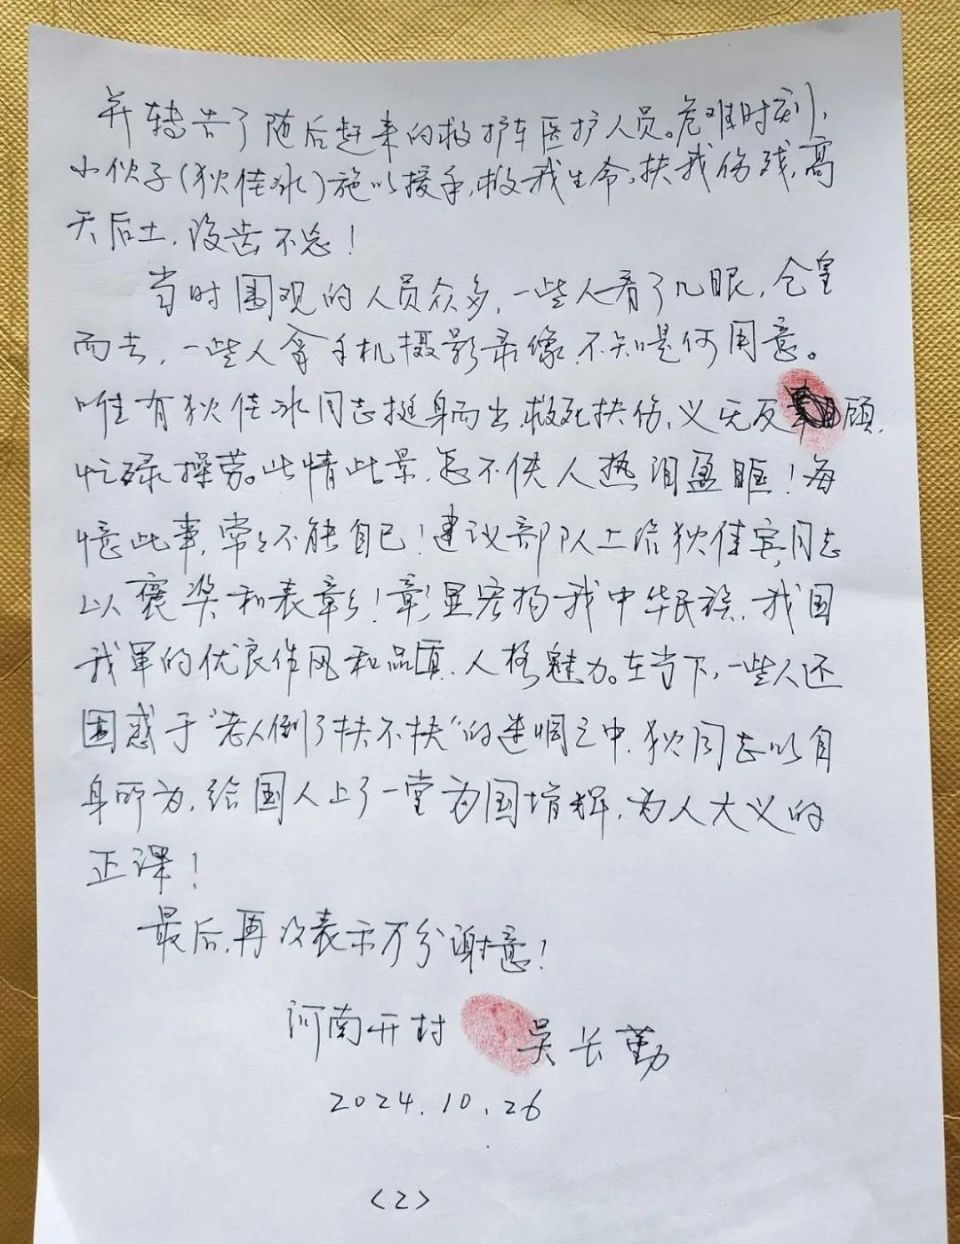 并转告了随后赶来的救护车医护人员。危难时刻,
小伙子(狄佳冰)施以援手,救我生命,扶我伤残,高
天后土,没齿不忘!
当时围观的人员众多,一些人看了几眼,仓皇
而去,一些人拿手机摄影录像不知是何用意。
唯有狄佳冰同志挺身而出,救死扶伤,义无反顾,
忙碌操劳。此情此景,怎不使人热泪盈眶!每
忆此事,常常不能自已!建议部队上给狄佳宾同志
以褒奖和表彰!彰显宏扬我中华民族,我国
我军的优良作风和品质,人格魅力。在当下,一些人还
困惑于“老人倒了扶不扶”的迷惘之中,狄同志以自
身所为,给国人上了一堂为国增辉,为人大义的
正课!
最后,再次表示万分谢意!
河南开封 吴长勤
2024.10.26
<2>